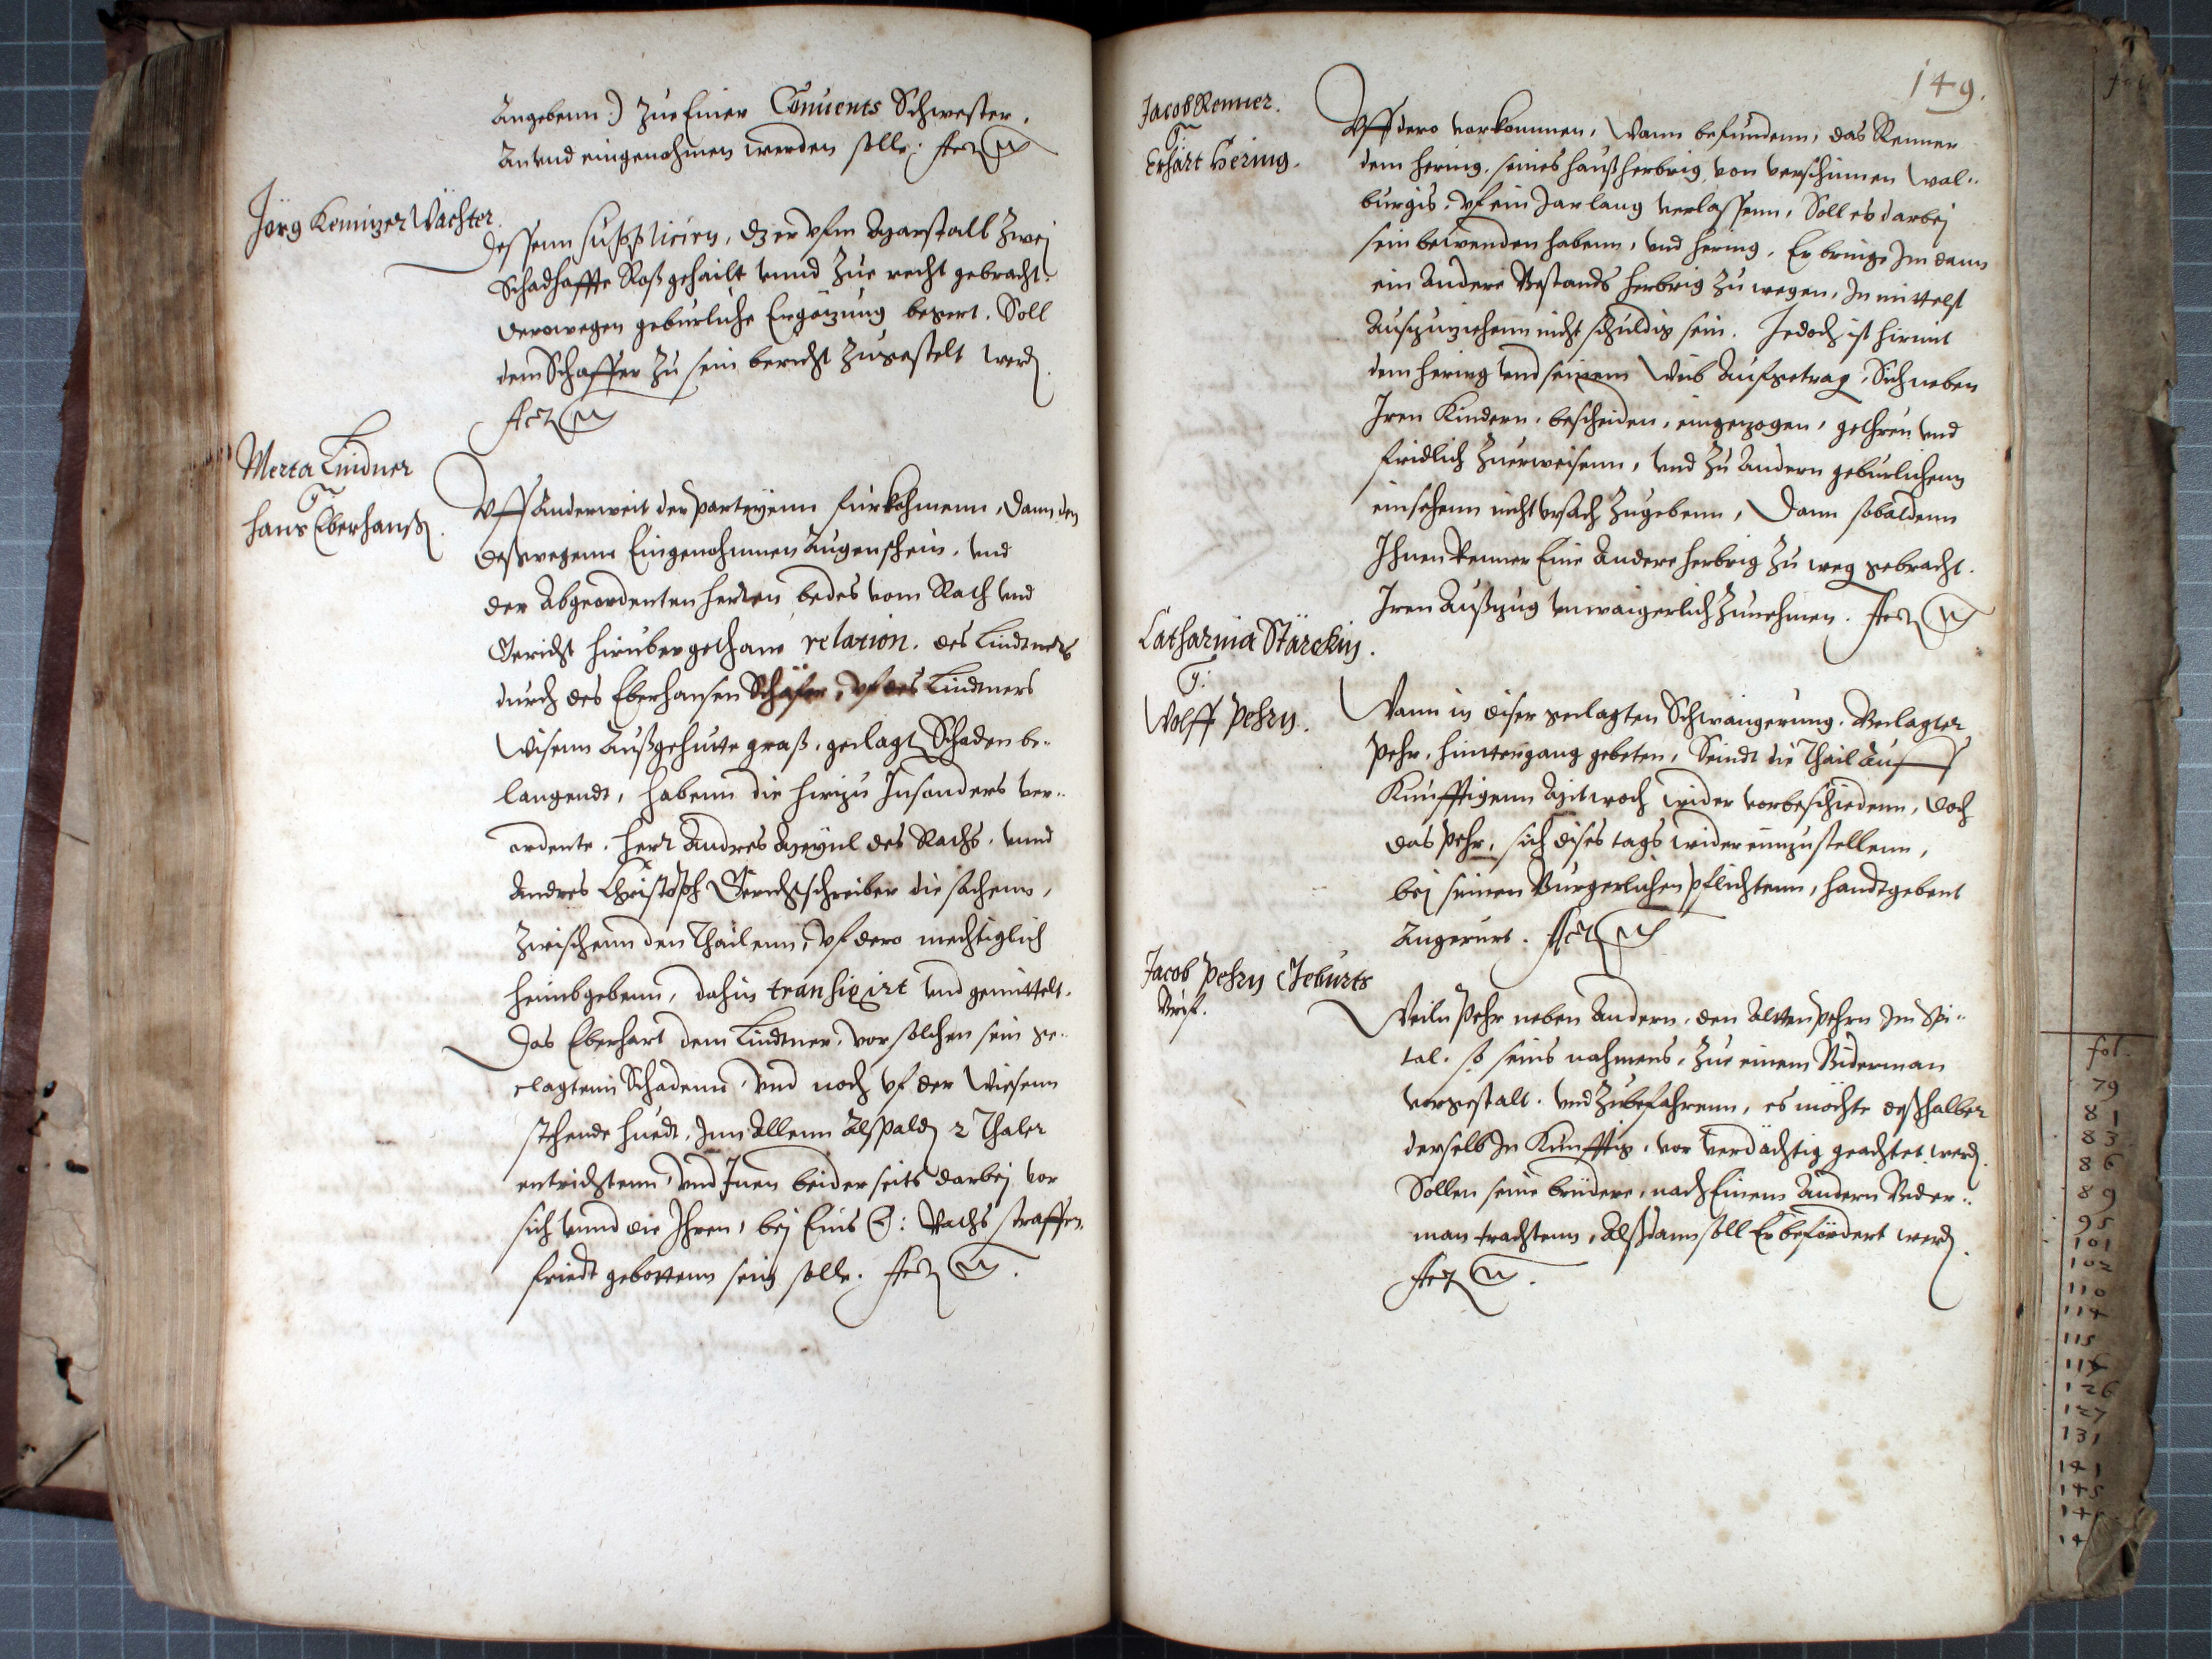 Angebenn:) zue Einer Conuents Schwester,
An vnd eingenohmen werden solle. Act.
Jörg Kemizer Wächter.
Dessenn suppliciern, dz er vfm Marstall zwej
Schadhaffte Roß gehailt vnnd zue recht gebracht.
Derowegen geburliche Ergözung begert. Soll
dem Schaffer zu sein bericht zugestelt werd.
Act.
Merta Lindner
G.
Hans Eberhanß.
Vff Anderweit der partheyenn fürkohmenn, Dann den
deßwegenn Eingenohmmen Augenschein, vnd
der Abgeordenten herren bedes vom Rath vnd
Gericht hirüber gethane relation, des Lindtners
durch des Eberhansen Schäfer, vf des Lindtners
Wisenn Außgehütte graß, geclagt Schaden be-
langendt, habenn die hirzu Insonders ver-
ordente, Herr Andres Meyul des Raths, vnnd
Andres Christoph Gerichtschreiber die sachenn,
zwischenn den Thailenn, vf dero mechtiglich
heimbgebenn, dahin transigirt vnd gemittelt.
Das Eberhart dem Lindtner, vor solchen sein ge-
clagtenn Schadenn, vnd noch vf der Wiesenn
stehende huedt, Inn Allenn Alßpald 2 Thaler
entrichtenn, vnd Inen beiderseits darbej vor
sich vnnd die Ihren, bej Eins E: Raths straffen,
friedt gebottenn sein solle. Act.
149.
Jacob Renner.
G.
Erhart Hering.
Vff dero vorkommen, Wann befundenn, das Renner
dem Hering, seines haußherbrig, von verschinnen Wal-
burgis, vf ein Jar lang verlassenn, Soll es darbej
sein bewenden habenn, vnd Hering, Er bringe Im dann
ein Andere Bestands herbrig zu wegen, In mittelst
Auszuziehenn nicht schuldig sein. Jedoch ist hirmit
dem Hering vnd seinem Weib Aufgetrag, Sich neben
Iren Kindern, bescheiden, eingezogen, gethreu vnd
fridlich zuerweisenn, vnd zu Andern geburlichenn
einsehenn nicht vrsach zugebenn, Dann sobaldenn
Ihnen Renner Eine Andere herbrig zu weg gebracht.
Iren Außzug vnwaigerlich zunehmen. Act.
Catharina Stärckin.
G.
Wolff Pehrn.
Wann in diser geclagten Schwängerung, Beclagter
Pehr, hintergang gebeten, Seindt die Thail auf
Kunfftigenn Mitwoch wider vorbeschiedenn, doch
das Pehr, sich dises tags wider einzustellenn,
bej seinen Burgerlichen pflichtenn, handtgebent
Angerurt. Act.
Jacob Pehrn Geburts
Brief.
Weiln Pehr neben Andern, den Altten Pehrn Im Spi-
tal, so seins nahmens, zue einem Biderman
vorgestalt, vnd zubefahrenn, es möchte deßhalber
derselb In Kunfftig, vor verdächtig geachtet werd.
Sollen seine brüdere, nach Einem Andern Bider-
man trachtenn, Alßdann soll Er befördert werd.
Act.
fol.
79
81
83
86
89
95
101
102
110
114
115
116
126
127
131
141
145